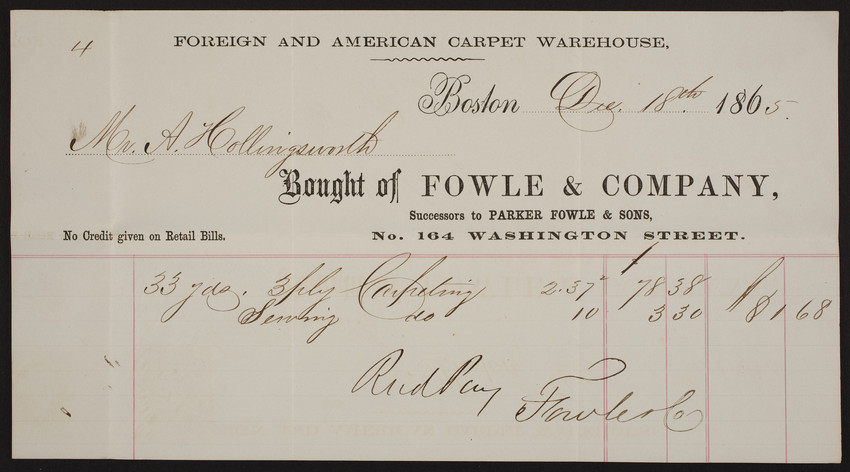 4
FOREIGN AND AMERICAN CARPET WAREHOUSE,
Boston Dec. 18th 1865.
Mr. A. Hollingsworth
Bought of FOWLE & COMPANY,
Successors to PARKER FOWLE & SONS,
No Credit given on Retail Bills. No. 164 WASHINGTON STREET.
33 yds. 3ply Carpeting 2.37½ 78 38
Sewing do 10 3 30 $81 68
Recd Pay
Fowle & Co